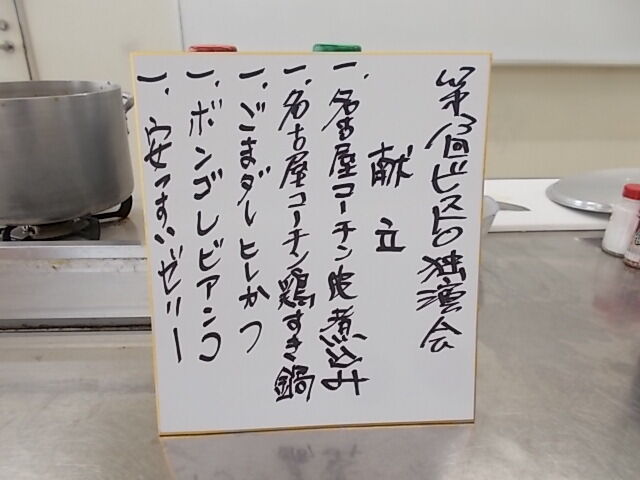 第3回ビストロ独演会
献立
一、名古屋コーチン皮煮込み
一、名古屋コーチン鶏すき鍋
一、ごまダレヒレかつ
一、ボンゴレビアンコ
一、安っすいゼリー